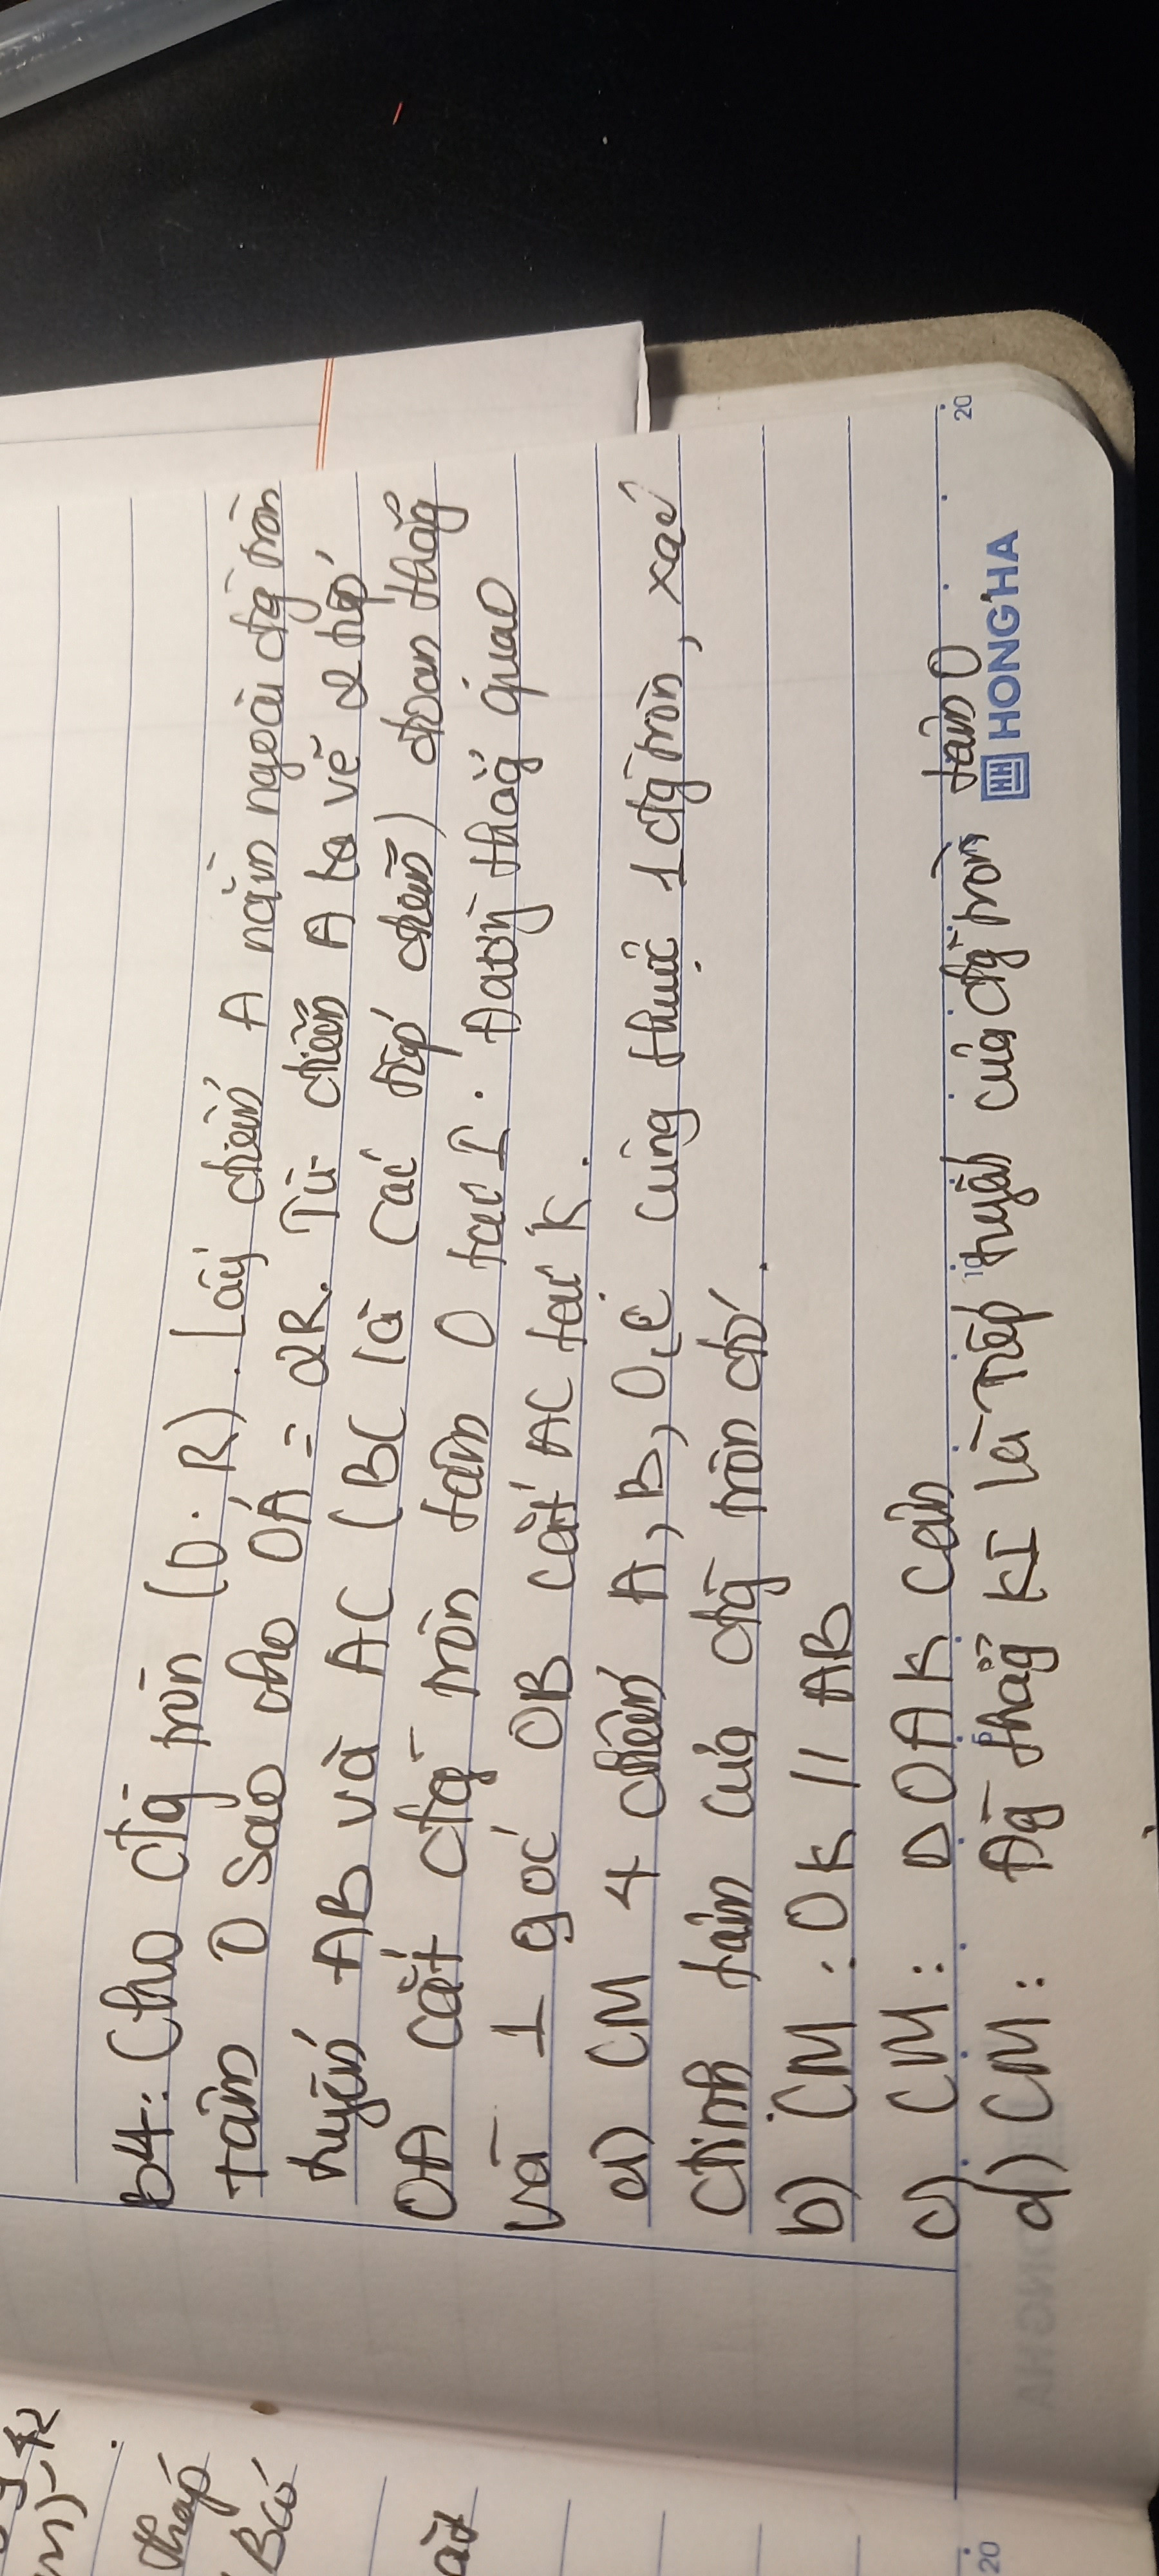 B4: Cho đg tròn (O. R). Lấy điểm A nằm ngoài đg tròn
tâm O sao cho OA = 2R. Từ điểm A ta vẽ 2 tiếp
tuyến AB và AC (BC là các tiếp điểm) đoạn thẳg
OA cắt đg tròn tâm O tại I. Đườg thẳg qua O
và ⊥ góc OB cắt AC tại K.
a) CM 4 điểm A, B, O, C cùng thuộc 1 đg tròn, xác
định tâm của đg tròn đó.
b) CM: OK // AB
c) CM: Δ OAK cân
d) CM: Đg thẳg KI là Tiếp tuyến của đg tròn tâm O
HONG HA
5
10
20
20
tháp